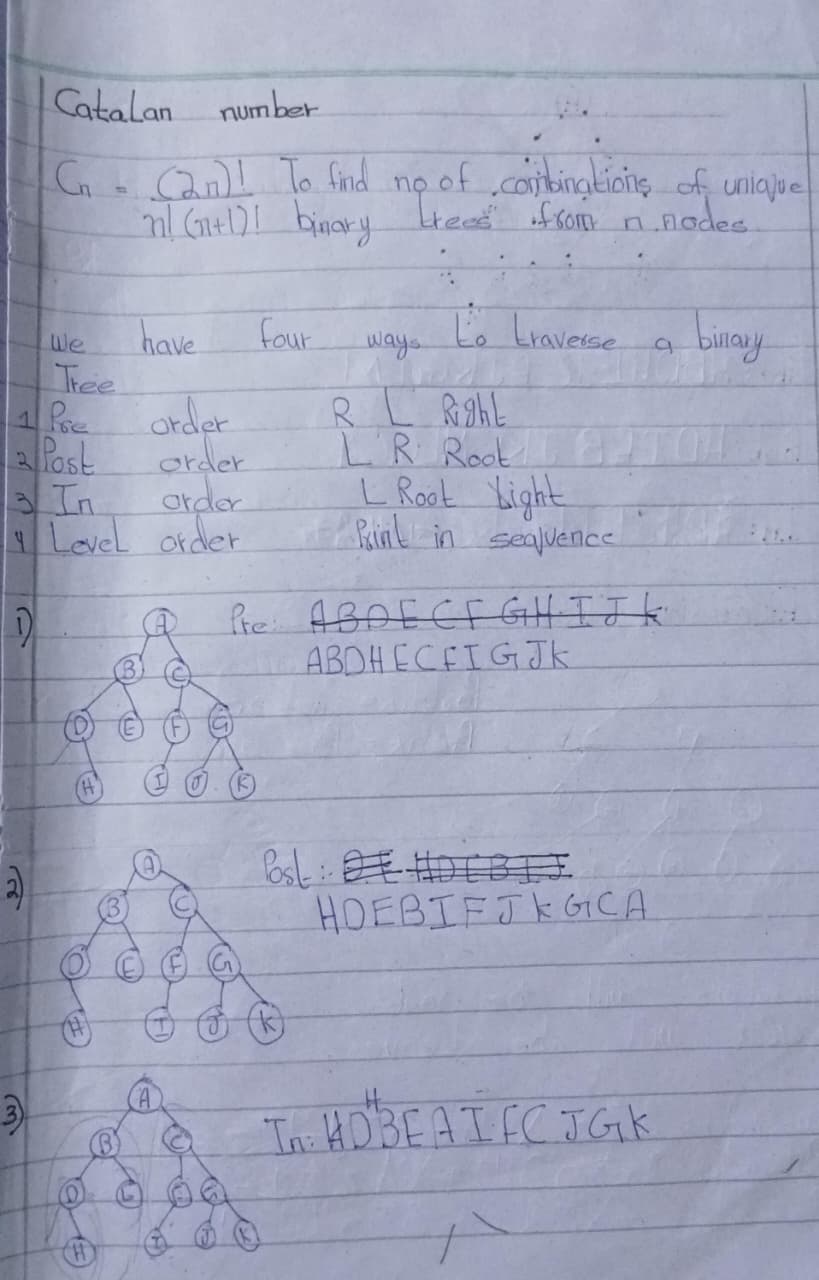 Catalan number
Cn = (2n)! To find no of combinations of uniqve
n! (n+1)! binary trees from n nodes
We have four ways to traverse a binary
Tree
1 Pre order R L Right
2 Post order L R Root
3 In order L Root Right
4 Level order Print in seqvence
1) A Pre: ABDECFGHIJK
B C ABDHECFIGJK
D E F G
H I J K
2) A Post: DE HDEBIJ
B C HDEBIFJKGCA
D E F G
H I J K
3) A H
B C In: HDBEAIFCJGK
D E F G
H I J K